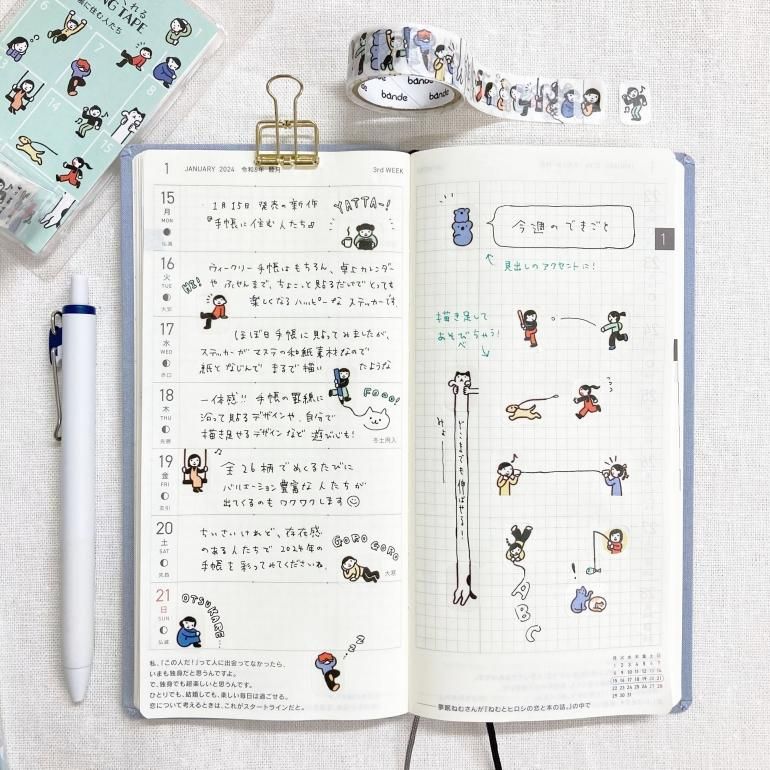 くれる
NG TAPE
に住む人たち
6
7
8
13
14
15
bande
bande
bande
1 JANUARY 2024 令和6年 睦月 3rd WEEK
15
月
MON
仏滅
1月15日 発売の新作
『手帳に住む人たち』
YATTA〜!
16
火
TUE
大安
ウィークリー手帳はもちろん、卓上カレンダー
や ふせんまで、ちょこっと貼るだけでとっても
楽しくなるハッピーなステッカーです。
HEY!
17
水
WED
赤口
ほぼ日手帳に貼ってみましたが、
ステッカーがマステの和紙素材なので
紙となじんで まるで描い たような
18
木
THU
先勝
一体感!! 手帳の罫線に
沿って貼るデザインや、自分で
描き足せるデザインなど 遊び心も!
Fooo!
冬土用入
19
金
FRI
友引
全26柄でめくるたびに
バリエーション豊富な人たちが
出てくるのもワクワクします
20
土
SAT
先負
ちいさいけれど、存在感
のある人たちで 2024年の
手帳を彩ってみてくださいね。
GORO GORO
大寒
21
日
SUN
仏滅
OTSUKARE...
ZZ
私、「この人だ!」って人に出会ってなかったら、
いまも独身だと思うんですよ。
で、独身でも超楽しいと思うんです。
ひとりでも、結婚しても、楽しい毎日は過ごせる。
恋について考えるときは、これがスタートラインだと。
今週のできごと
1
見出しのアクセントに!
描き足して
あそびちゃう!
べ
どこまでも伸ばせる!
みょ
ABC
!
月 火 水 木 金 土 日
1 2 3 4 5 6 7
8 9 10 11 12 13 14
15 16 17 18 19 20 21
22 23 24 25 26 27 28
29 30 31
夢眠ねむさんが『ねむとヒロシの恋と本の話。』の中で